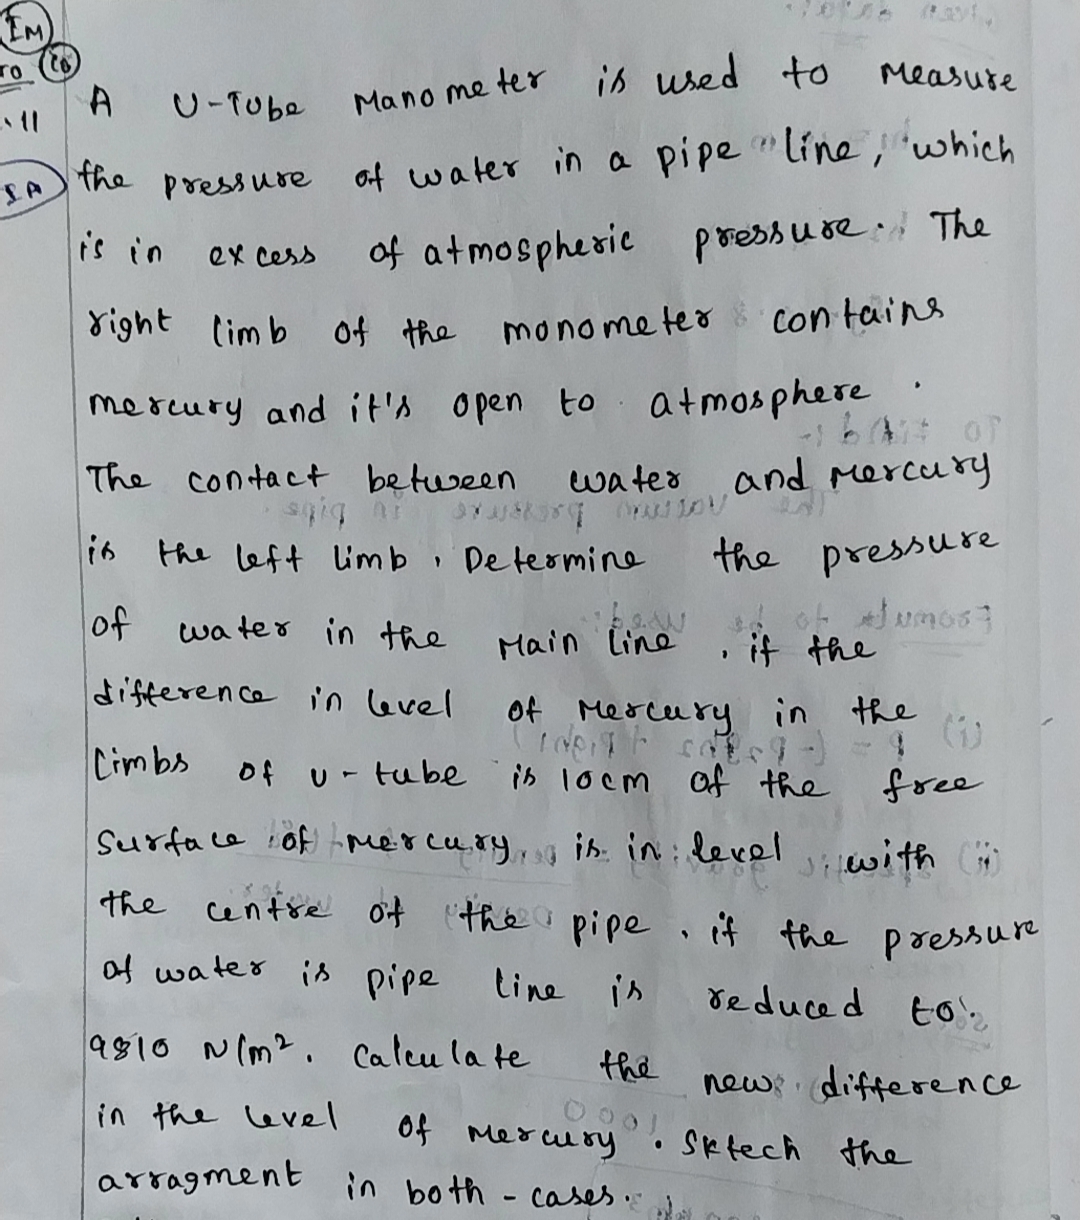 IM
TO (CO)
.11 A U-Tube Manometer is used to Measure
the pressure of water in a pipe line, which
is in excess of atmospheric pressure. The
right limb of the monometer contains
mercury and it's open to atmosphere.
The contact between water and Mercury
is the left limb. Determine the pressure
of water in the Main line, if the
difference in level of Mercury in the
limbs of u-tube is 10cm of the free
surface of mercury, is in level with
the centre of the pipe. if the pressure
of water is pipe line is reduced to
9810 N/m². Calculate the new difference
in the level of Mercury. Sktech the
arragment in both-cases.